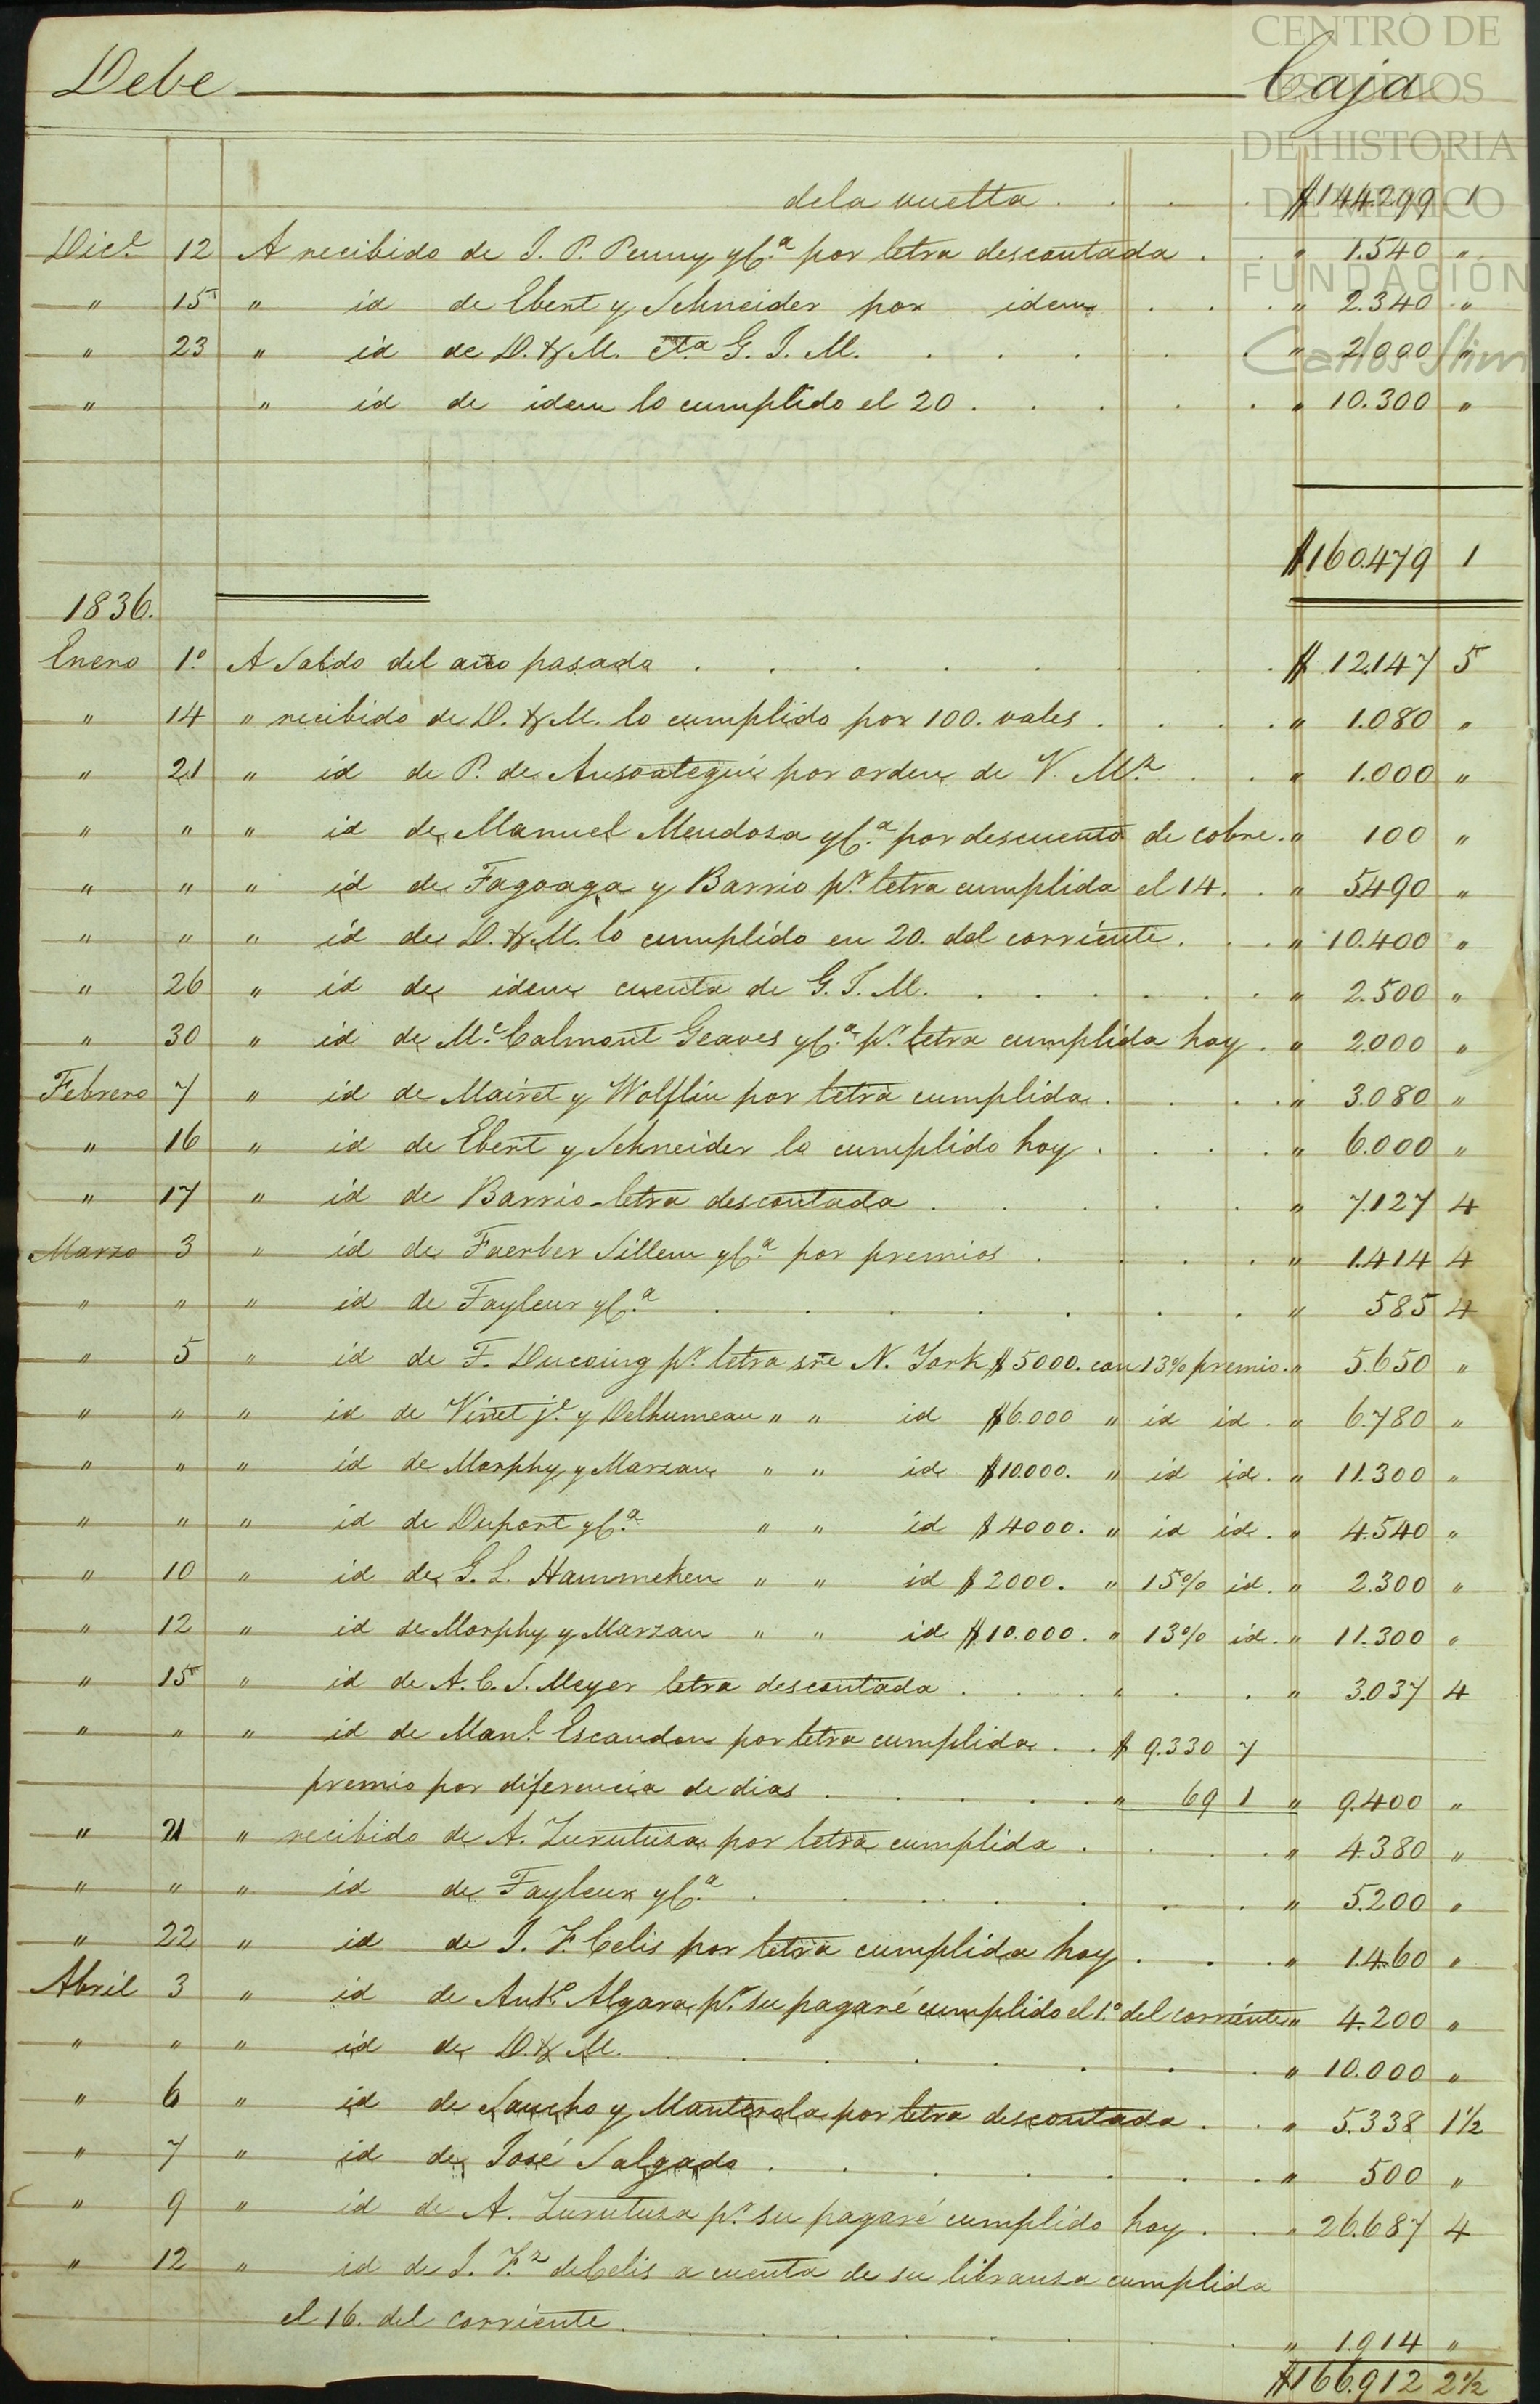 CENTRO DE
ESTUDIOS
DE HISTORIA
DE MÉXICO
FUNDACIÓN
Carlos Slim
Debe Caja
de la vuelta . . . . $ 144.299 1
Dice. 12 A recibido de J. P. Penny yCa. por letra descontada . . " 1.540 "
" 15 " id de Ebert y Schneider por idem . . . " 2.340 "
" 23 " id de D. & M. cta G. J. M. . . . . . " 2.000 "
" " id de idem lo cumplido el 20 . . . . . " 10.300 "
$ 160.479 1
1836.
Enero 1o. A Saldo del año pasado . . . . . . . . $ 12.147 5
" 14 " recibido de D. & M. lo cumplido por 100. vales . . . . " 1.080 "
" 21 " id de P. de Ansoategui por orden de V. Mz. . . " 1.000 "
" " " id de Manuel Mendosa yCa. por descuento de cobre . " 100 "
" " " id de Fagoaga y Barrio pr. letra cumplida el 14. . " 5.490 "
" " " id de D. & M. lo cumplido en 20. del corriente . . . " 10.400 "
" 26 " id de idem cuenta de G. J. M. . . . . . . " 2.500 "
" 30 " id de Mc. Calmont Geaves yCa. pr. letra cumplida hoy . " 2.000 "
Febrero 7 " id de Mairet y Wolflin por letra cumplida . . . . " 3.080 "
" 16 " id de Ebert y Schneider lo cumplido hoy . . . . " 6.000 "
" 17 " id de Barrio letra descontada . . . . . " 7.127 4
Marzo 3 " id de Faerber Sillem yCa. por premios . . . . " 1.414 4
" " " id de Fayleur yCa. . . . . . . . " 585 4
" 5 " id de F. Ducoing pr. letra sre N. York $ 5000. con 13% premio . " 5.650 "
" " " id de Vinet je. y Delhumeau " " id $ 6.000 " id id . " 6.780 "
" " " id de Morphy y Marzan " " id $ 10.000. " id id . " 11.300 "
" " " id de Duport yCa. " " id $ 4000. " id id . " 4.540 "
" 10 " id de G. L. Hammeken " " id $ 2000. " 15% id. " 2.300 "
" 12 " id de Morphy y Marzan " " id $ 10.000. " 13% id. " 11.300 "
" 15 " id de A. C. S. Meyer letra descontada . . . " . . " 3.037 4
" " " id de Manl. Escandon por letra cumplida . . $ 9.330 7
premio por diferencia de dias . . . . . " 69 1 " 9.400 "
" 21 " recibido de A. Zurutusa por letra cumplida . . . . " 4.380 "
" " " id de Fayleur yCa. . . . . . . . " 5.200 "
" 22 " id de J. F. Celis por letra cumplida hoy . . . " 1.460 "
Abril 3 " id de Anto. Algara pr. su pagaré cumplido el 1o. del corriente " 4.200 "
" " " id de D. & M. . . . . . . . " 10.000 "
" 6 " id de Sancho y Manterola por letra descontada . . " 5.338 1½
" 7 " id de José Salgado . . . . . . . " 500 "
" 9 " id de A. Zurutusa pr. su pagaré cumplido hoy . . " 26.687 4
" 12 " id de J. Fz. de Celis a cuenta de su libransa cumplida
el 16. del corriente . . . . . . . " 1.914 "
$ 166.912 2½